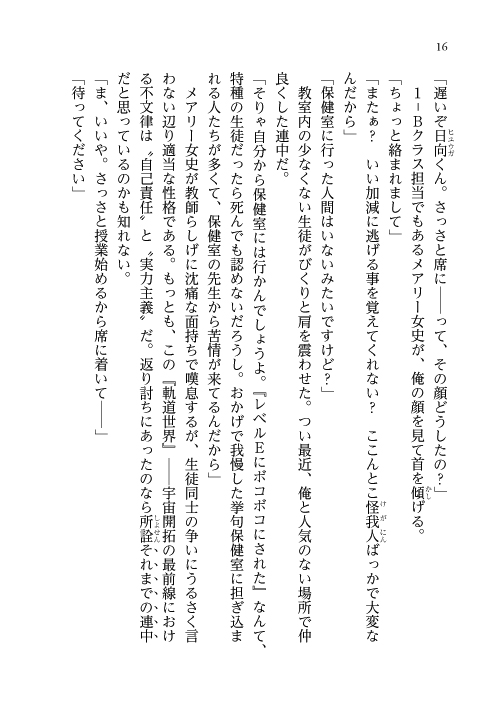 16
「遅いぞ日向くん。さっさと席に――って、その顔どうしたの？」
ヒュウガ
　１‐Ｂクラス担当でもあるメアリー女史が、俺の顔を見て首を傾げる。
かし
「ちょっと絡まれまして」
「またぁ？　いい加減に逃げる事を覚えてくれない？　ここんとこ怪我人ばっかで大変な
けがにん
んだから」
「保健室に行った人間はいないみたいですけど？」
　教室内の少なくない生徒がびくりと肩を震わせた。つい最近、俺と人気のない場所で仲
良くした連中だ。
「そりゃ自分から保健室には行かんでしょうよ。『レベルＥにボコボコにされた』なんて、
特種の生徒だったら死んでも認めないだろうし。おかげで我慢した挙句保健室に担ぎ込ま
れる人たちが多くて、保健室の先生から苦情が来てるんだから」
　メアリー女史が教師らしげに沈痛な面持ちで嘆息するが、生徒同士の争いにうるさく言
わない辺り適当な性格である。もっとも、この『軌道世界』――宇宙開拓の最前線におけ
る不文律は〝自己責任〟と〝実力主義〟だ。返り討ちにあったのなら所詮それまでの連中
しょせん
だと思っているのかも知れない。
「ま、いいや。さっさと授業始めるから席に着いて――」
「待ってください」